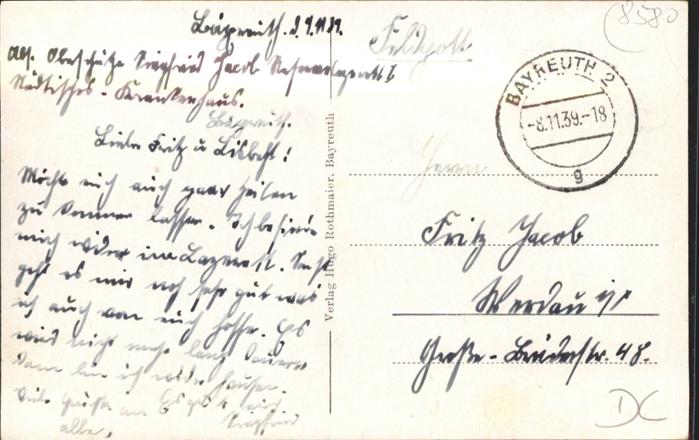 Bayreuth. d. 9.11.39.
Abs. Obeschütze Siegfried Jacob Reservelazarett I
Städtisches-Krankenhaus.
Bayreuth.
Liebe Fritz u Lisbeht!
Möchte euch auch paar Zeilen
zu kommen lassen. Ich befinde
mich wider im Lazarett. Sonst
geht es mir noch sehr gut was
ich auch von euch hoffe. Es
wird nicht mehr lang dauern
dann bin ich wider
viele Grüße an
alle. Siegfried
Feldpost
BAYREUTH 2
-8.11.39.-18
g
Herrn
Fritz Jacob
Werdau i/s
Große-Bruderstr. 48.
Verlag Hugo Rothmaier, Bayreuth
8580
DC